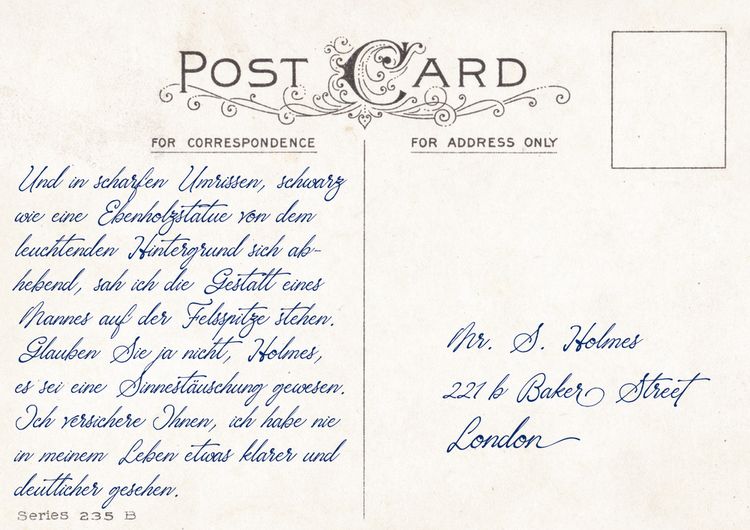 POST CARD
FOR CORRESPONDENCE
FOR ADDRESS ONLY
Und in scharfen Umrissen, schwarz
wie eine Ebenholzstatue von dem
leuchtenden Hintergrund sich ab-
hebend, sah ich die Gestalt eines
Mannes auf der Felsspitze stehen.
Glauben Sie ja nicht, Holmes,
es sei eine Sinnestäuschung gewesen.
Ich versichere Ihnen, ich habe nie
in meinem Leben etwas klarer und
deutlicher gesehen.
Mr. S. Holmes
221 b Baker Street
London
Series 235 B